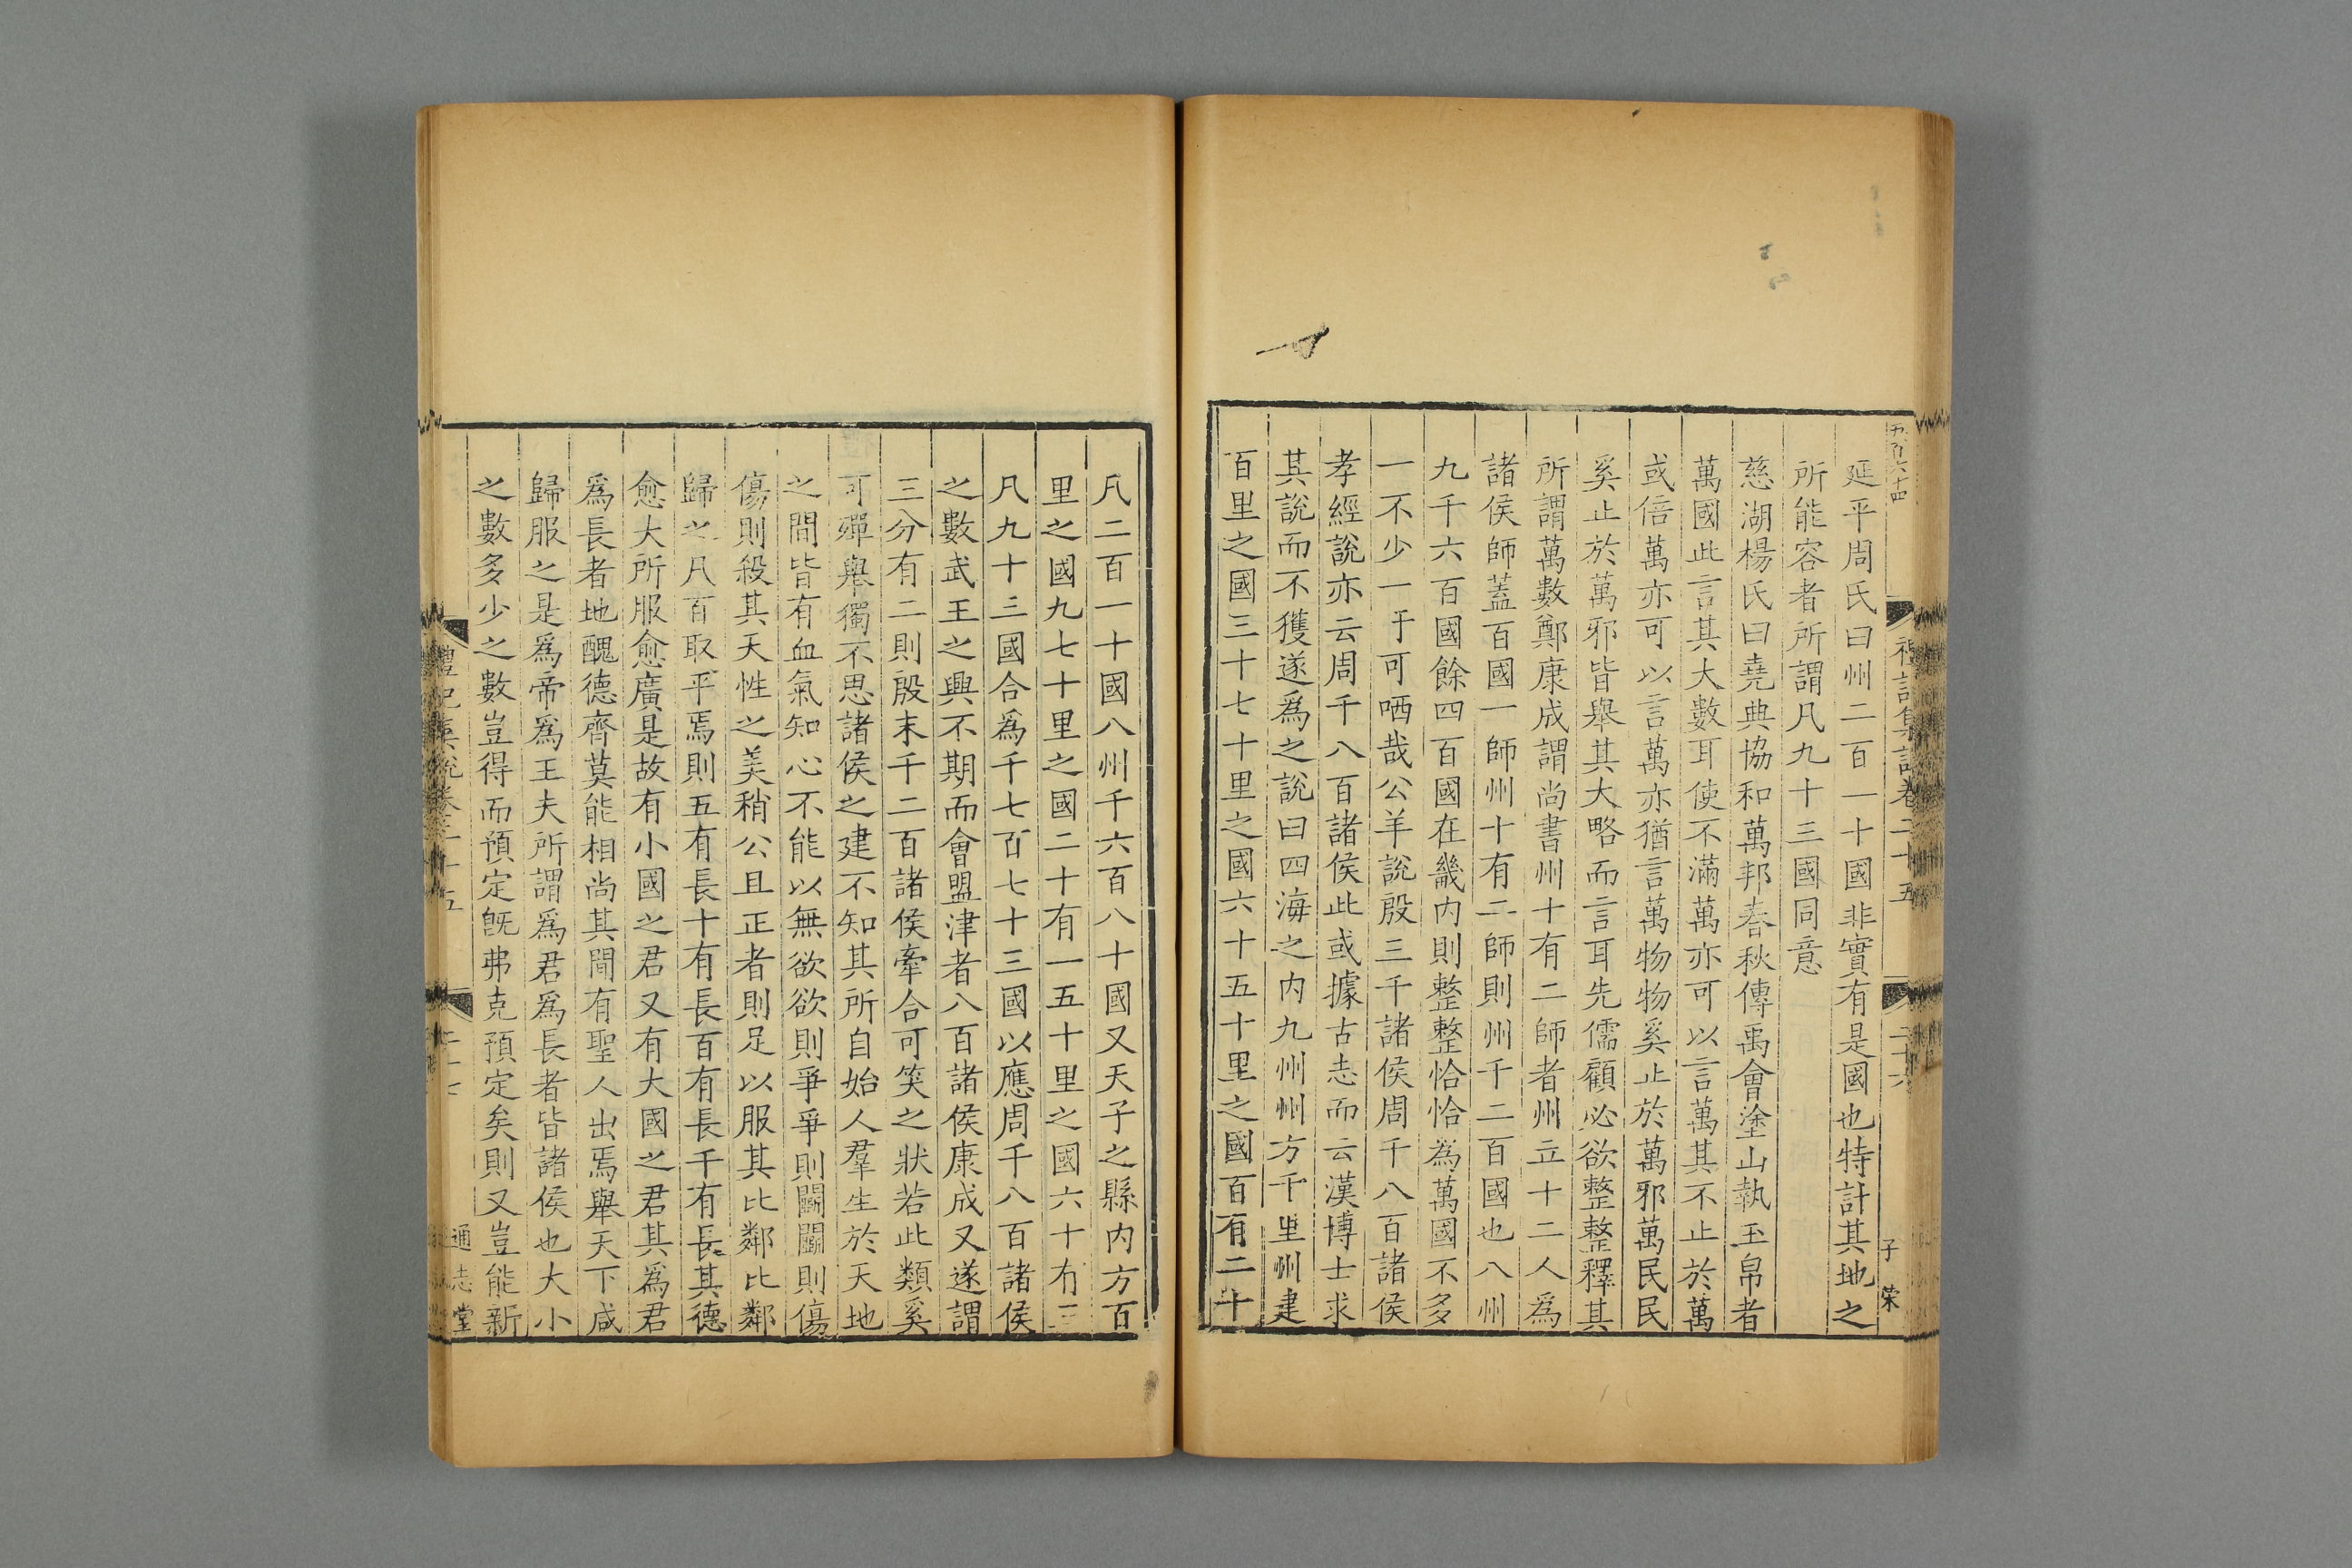 五百六十四
禮記集說卷二十五
二十六
子榮
延平周氏曰州二百一十國非實有是國也特計其地之
所能容者所謂凡九十三國同意
慈湖楊氏曰堯典協和萬邦春秋傳禹會塗山執玉帛者
萬國此言其大數耳使不滿萬亦可以言萬其不止於萬
或倍萬亦可以言萬亦猶言萬物物奚止於萬邪萬民民
奚止於萬邪皆舉其大略而言耳先儒顧必欲整整釋其
所謂萬數鄭康成謂尚書州十有二師者州立十二人為
諸侯師蓋百國一師州十有二師則州千二百國也八州
九千六百國餘四百國在畿內則整整恰恰為萬國不多
一不少一于可哂哉公羊說殷三千諸侯周千八百諸侯
孝經說亦云周千八百諸侯此或據古志而云漢博士求
其說而不獲遂為之說曰四海之內九州州方千里州建
百里之國三十七十里之國六十五十里之國百有二十
凡二百一十國八州千六百八十國又天子之縣內方百
里之國九七十里之國二十有一五十里之國六十有三
凡九十三國合爲千七百七十三國以應周千八百諸侯
之數武王之興不期而會盟津者八百諸侯康成又遂謂
三分有二則殷末千二百諸侯牽合可笑之狀若此類奚
可殫舉獨不思諸侯之建不知其所自始人羣生於天地
之間皆有血氣知心不能以無欲欲則爭爭則鬭鬭則傷
傷則殺其天性之美稍公且正者則足以服其比鄰比鄰
歸之凡百取平焉則五有長十有長百有長千有長其德
愈大所服愈廣是故有小國之君又有大國之君其爲君
爲長者地醜德齊莫能相尚其間有聖人出焉舉天下咸
歸服之是爲帝爲王夫所謂爲君爲長者皆諸侯也大小
之數多少之數豈得而預定既弗克預定矣則又豈能新
禮記集說卷二十五
二十七
通志堂